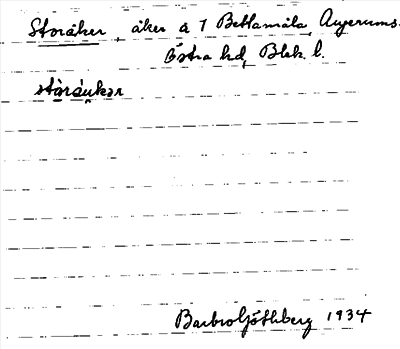 Storåker, åker å 7 Betlamåla, Augerums.
Östra hd, Blek. l.
stóráukər
Barbro Göthberg 1934